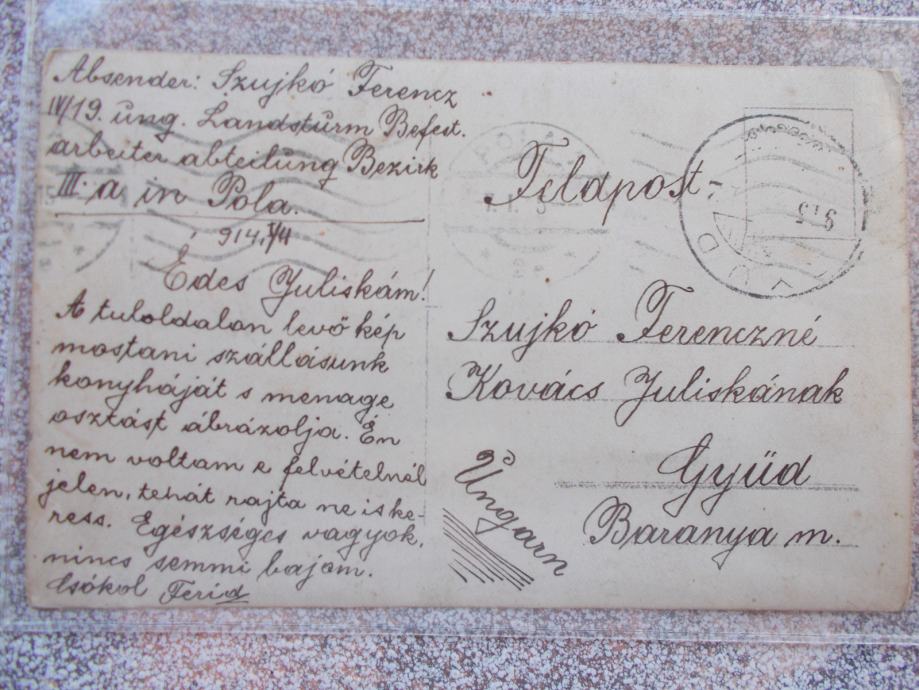 Absender: Szujkó Ferencz
IV/19. ung. Landsturm Befest.
arbeiter abteilung Bezirk
III. a in Pola.
914. V/4
Édes Juliskám!
A tuloldalan levő kép
mostani szállásunk
konyháját s menage
osztást ábrázolja. Én
nem voltam e felvételnél
jelen, tehát rajta ne is ke-
ress. Egészséges vagyok,
nincs semmi bajom.
Csókol Ferid
Feldpost-
Szujkó Ferenczné
Kovács Juliskának
Gyüd
Baranya m.
Ungarn